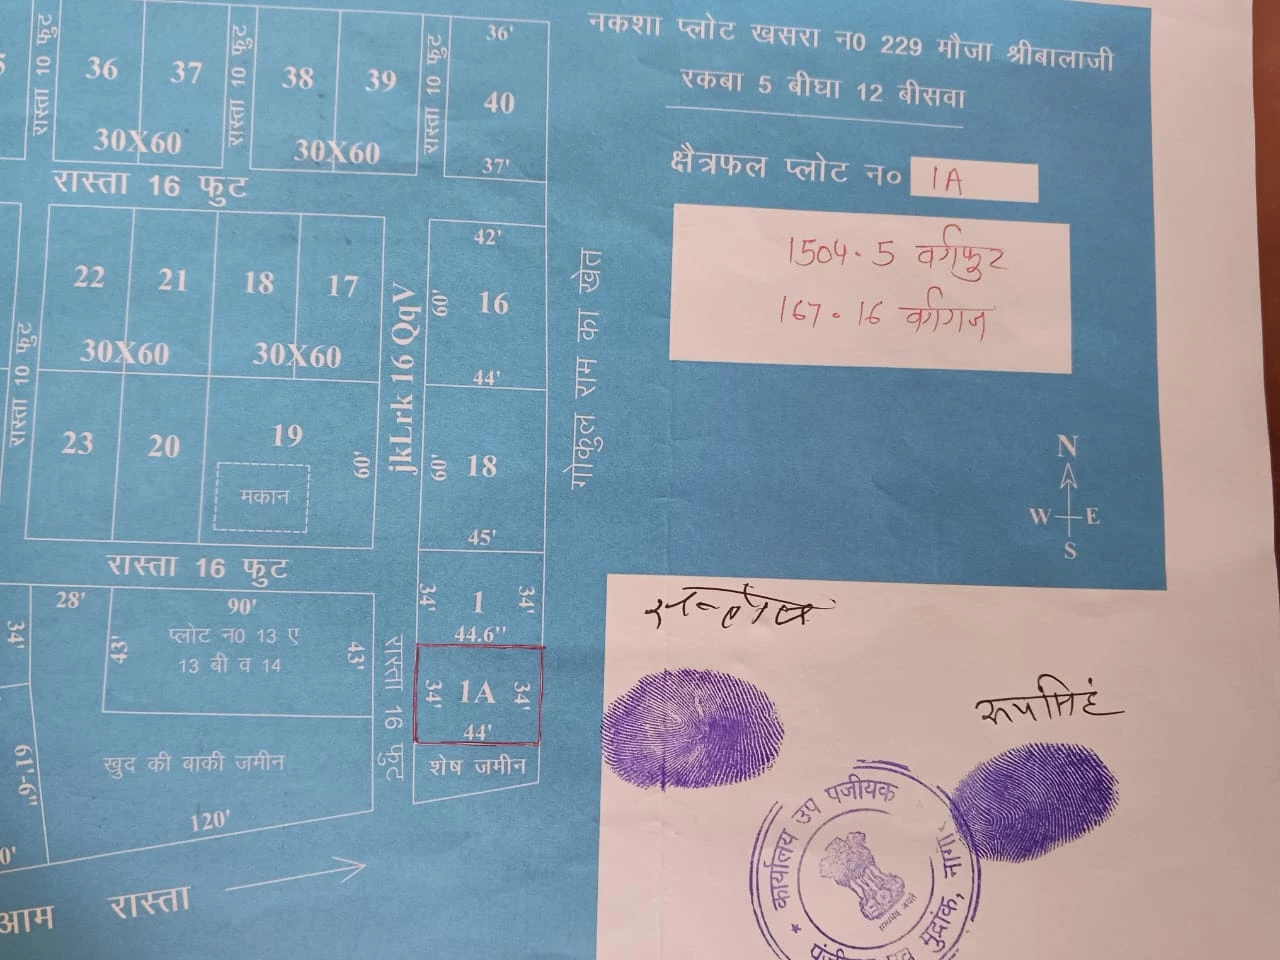 नकशा प्लोट खसरा न0 229 मौजा श्रीबालाजी
रकबा 5 बीघा 12 बीसवा
क्षैत्रफल प्लोट न० 1A
1504.5 वर्गफुट
167.16 वर्गगज
N
W E
S
रास्ता 10 फुट
36
37
30X60
रास्ता 10 फुट
38
39
30X60
रास्ता 10 फुट
36'
40
37'
रास्ता 16 फुट
22
21
18
17
30X60
30X60
रास्ता 10 फुट
23
20
19
मकान
60'
jkLrk 16 QqV
42'
60'
16
44'
60'
18
45'
गोकुल राम का खेत
रास्ता 16 फुट
34'
1
34'
44.6"
34'
1A
34'
44'
शेष जमीन
28'
34'
90'
43'
प्लोट न0 13 ए
13 बी व 14
43'
रास्ता 16 फुट
खुद की बाकी जमीन
61'-6"
120'
0'
आम रास्ता
रुपसिहं
कार्यालय उप पजीयक
मुद्रांक,